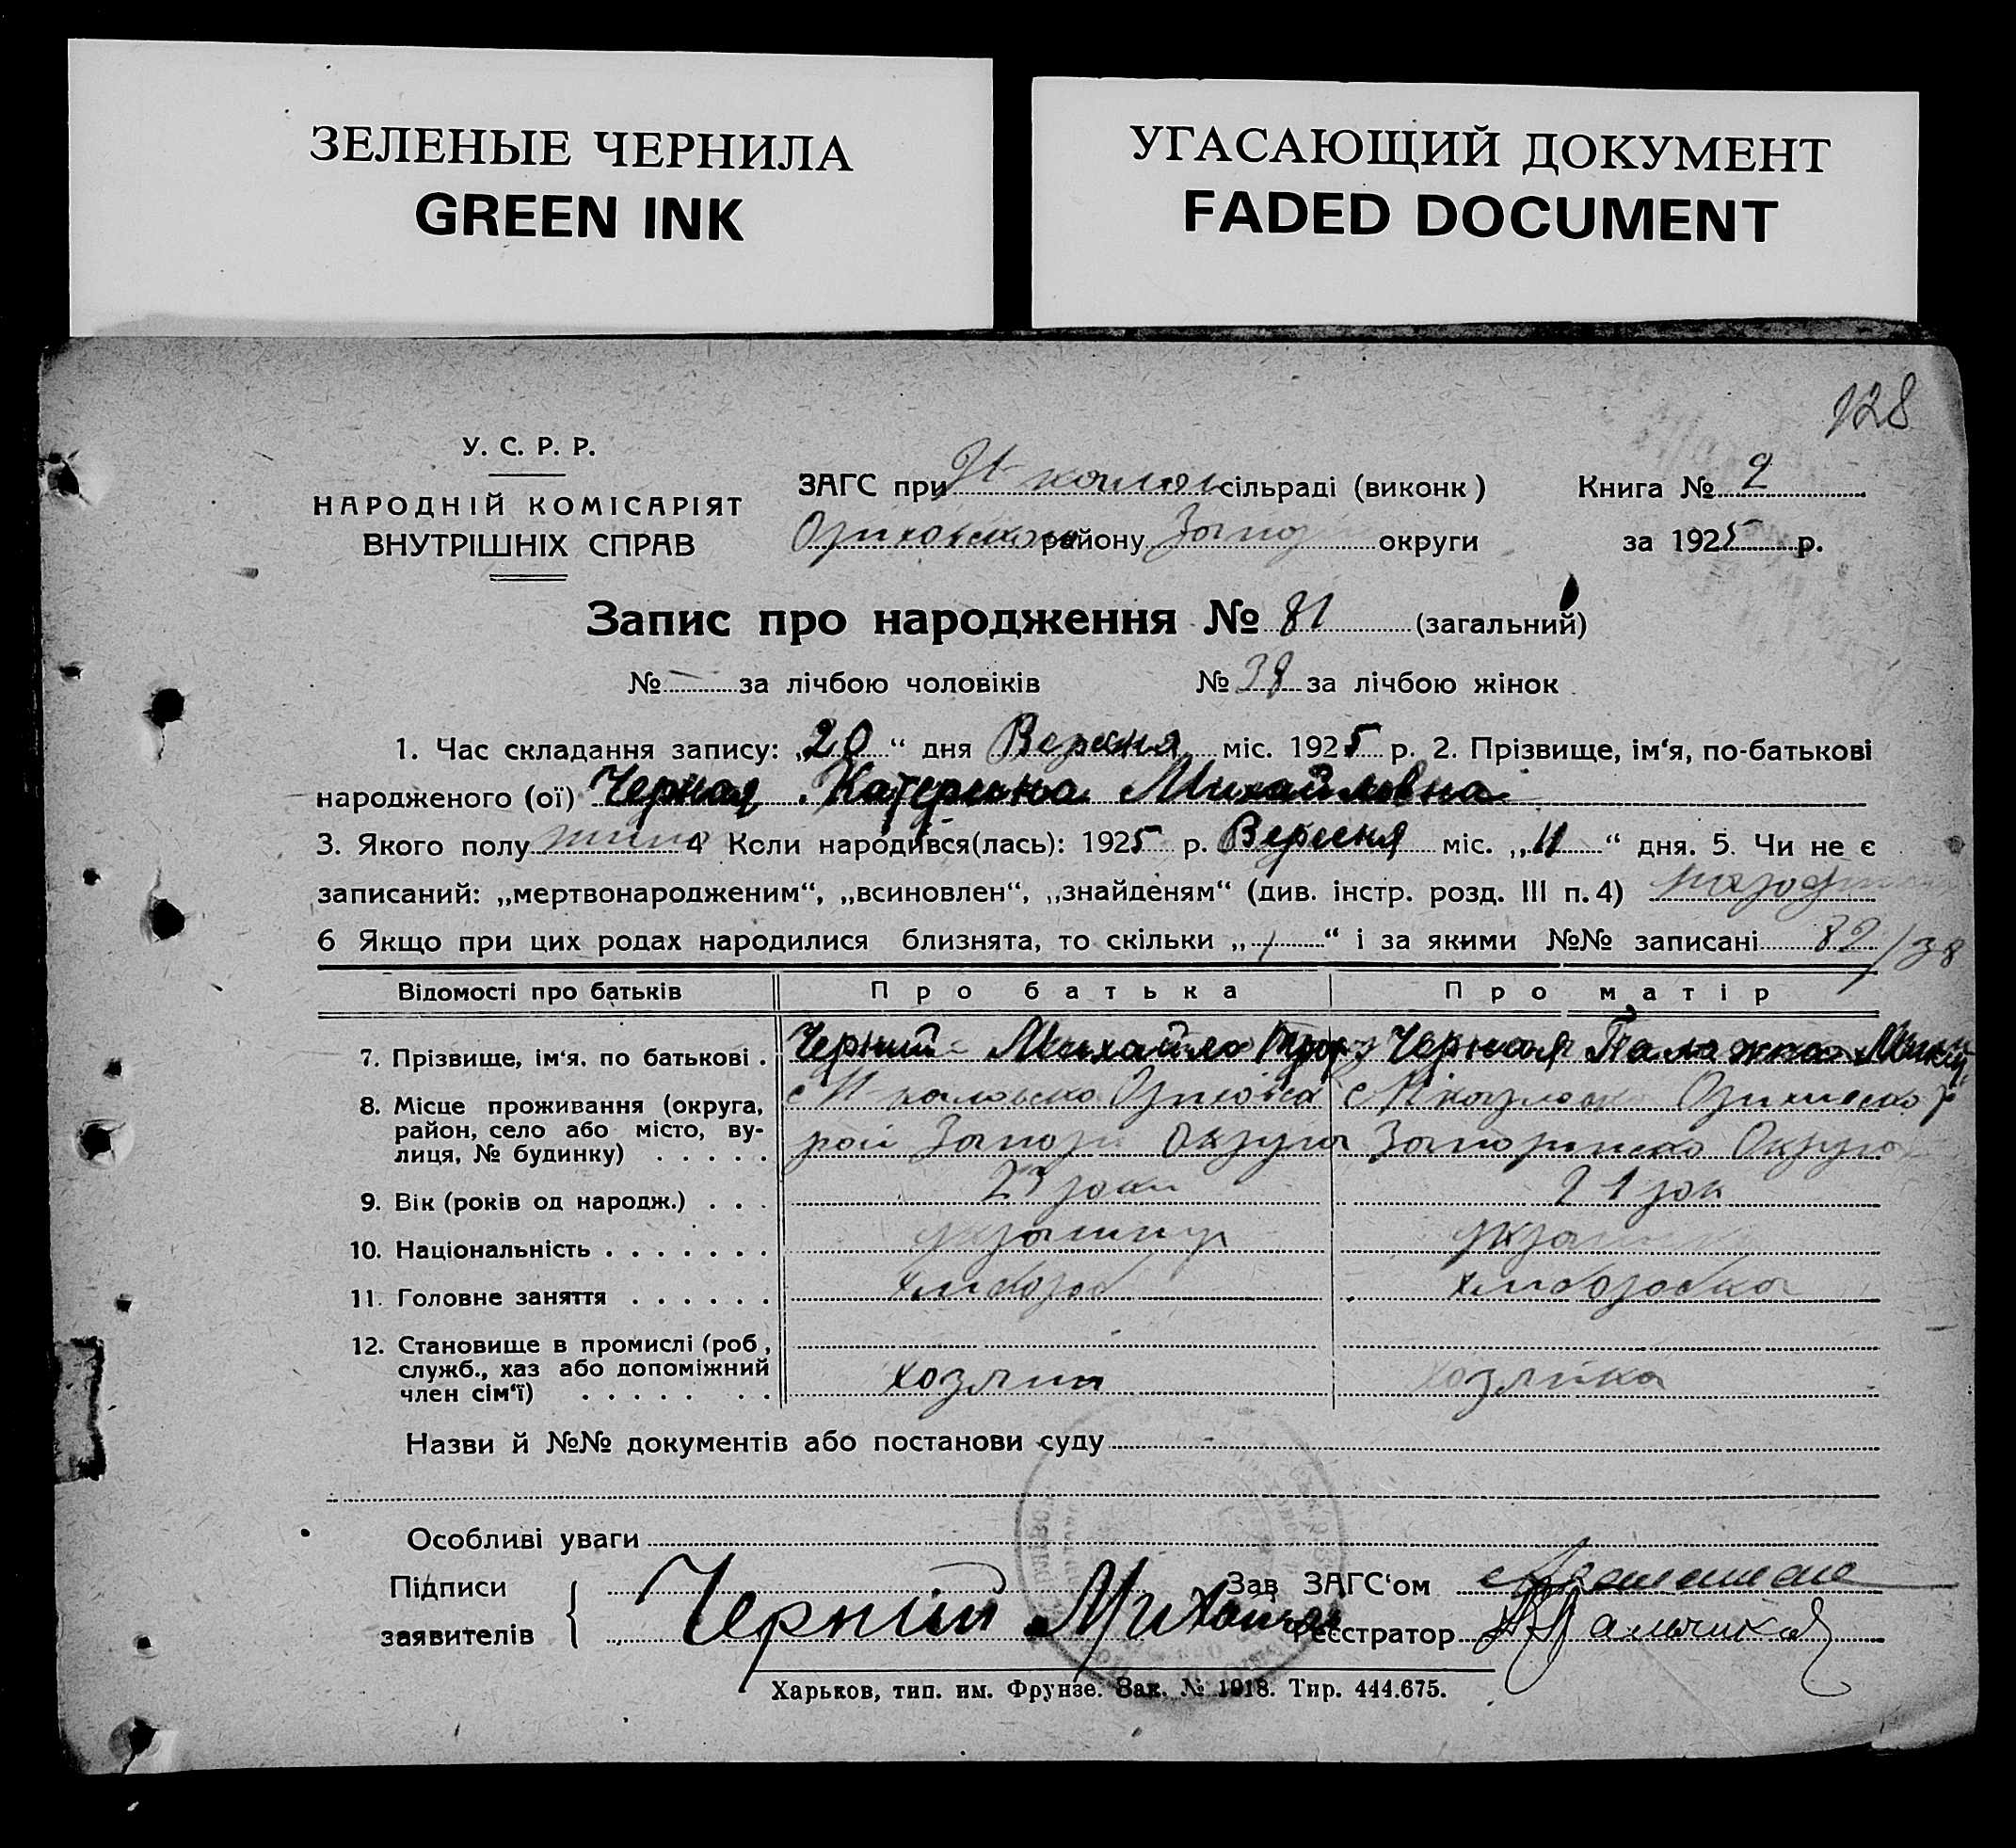 ЗЕЛЕНЫЕ ЧЕРНИЛА
GREEN INK
УГАСАЮЩИЙ ДОКУМЕНТ
FADED DOCUMENT
128
У. С. Р. Р.
НАРОДНІЙ КОМІСАРІЯТ
ВНУТРІШНІХ СПРАВ
ЗАГС при сільраді (виконк)
району Запор округи
Книга № 2
за 1925 р.
Запис про народження № 81 (загальний)
№ — за лічбою чоловіків № 38 за лічбою жінок
1. Час складання запису: „20“ дня Вересня міс. 1925 р. 2. Прізвище, ім‘я, по-батькові
народженого (ої) Черная Катерина Михайловна
3. Якого полу 4 Коли народився(лась): 1925 р. Вересня міс. „11“ дня. 5. Чи не є
записаний: „мертвонародженим“, „всиновлен“, „знайденям“ (див. інстр. розд. III п. 4)
6 Якщо при цих родах народилися близнята, то скільки „ “ і за якими №№ записані 82/38
Відомості про батьків Про батька Про матір
7. Прізвище, ім‘я, по батькові . Черний Михайло Черная Палажка
8. Місце проживання (округа,
район, село або місто, ву-
лиця, № будинку) . . . . . Запор Округа Округа
9. Вік (років од народж.) . . . 23 роки 21 рок
10. Національність . . . . . . .
11. Головне заняття . . . . . . хлибороб хлиборобка
12. Становище в промислі (роб,
служб., хаз або допоміжний
член сім‘ї) . . . . . . . хозяин хозяйка
Назви й №№ документів або постанови суду
Особливі уваги
Підписи
заявителів
Черний Михайло
Зав ЗАГС‘ом
Реєстратор
Харьков, тип. им. Фрунзе. Зак. № 1918. Тир. 444.675.